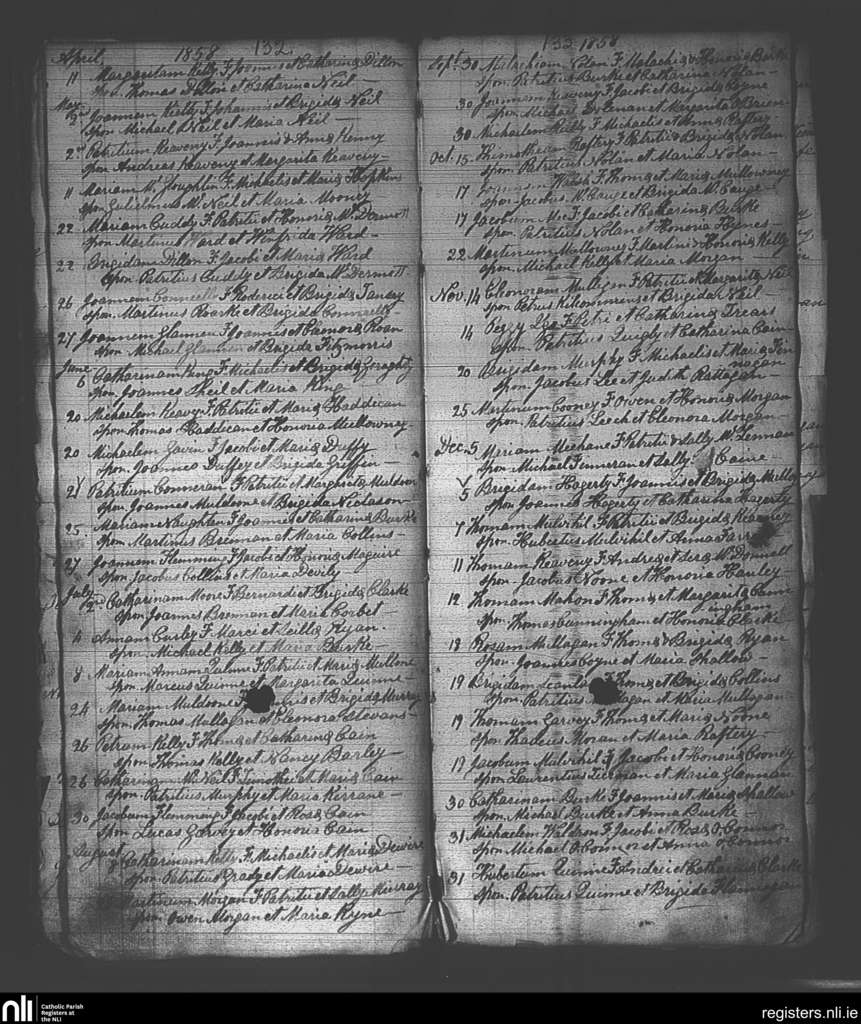 April, 1858 132
11 Margaritam Kelly F. Joannis et Catharina Dillon
Spon. Thomas Dillon et Catharina Neil
May
2nd Joannem Kelly F. Johannis et Brigida Neil
Spon Michael Neil et Maria Neil
2nd Patritium Reaveny F. Joannis & Anna Kenny
Spon Andreas Reaveny et Margarita Reaveny
11 Mariam McLoughlin F. Michaelis et Maria Hopkins
Spon Gulielmus McNeil et Maria Mooney
22 Mariam Cuddy F. Patritii et Honoria McDermott
Spon. Martinus Ward et Winfrida Ward
22 Brigidam Dillon F. Jacobi et Maria Ward
Spon Patritius Cuddy et Brigida McDermott
26 Joannem F. Roderici et Brigida
Spon. Martinus Roarke et Brigida
27 Joannem Glannen F. Joannis et Eleonora Roan
Spon. Michael Glannen et Brigida Fitzmorris
June
6 Catharinam King F. Michaelis et Brigida Geraghty
Spon. Joannes Sheil et Maria King
20 Michaelem Reavy F. Patritii et Maria Haddican
Spon Thomas Haddican et Honoria Mullowney
20 Michaelem Gavin F. Jacobi et Maria Duffy
Spon. Joannes Duffey et Brigida Griffin
21 Patritium Conneran F. Patritii et Margarita Muldoon
Spon. Joannes Muldoone et Brigida
25 Mariam Naughtan F. Joannis et Catharina Burke
Spon. Martinus Brennan et Maria Collins
27 Joannem Flemming F. Jacobi et Honoria Maguire
Spon. Jacobus Collins et Maria Devily
July
2nd Catharinam Moore F. Bernardi et Brigida Clarke
Spon Joannes Brennan et Maria Corbet
4 Annam Curley F. Marci et Ryan
Spon. Michael Kelly et Maria Burke
8 Mariam Annam Quinne F. Patritii et Maria Mullone
Spon. Marcus Quinne et Margarita
24 Mariam Muldoone et Brigida Murray
Spon. Thomas Mullagan et Eleonora Stevans
26 Petrum Kelly F. Thoma et Catharina Cain
Spon Thomas Kelly et Nancy Barley
26 Catharinam McNeil F. Timothei et Maria Cain
Spon. Patritius Murphy et Maria Kirrane
30 Jacobum Flemming F. Jacobi et Rosa Cain
Spon Lucas Garvey et Honoria Cain
August
Catharinam Kelly F. Michaelis et Maria Dewire
Spon. Patritius Grady et Maria Dewire
Martinum Morgan F. Patritii et Sally Murray
Spon. Owen Morgan et Maria Kyne
133 1858
Sept. 30 Malachiam Nolan F. Malachia & Honoria Burke
Spon. Patritius Burke et Catharina Nolan
30 Joannem Reaveny F. Jacobi et Brigida Coyne
Spon. Michael et Margarita O'Brien
30 Michaelem Kelly F. Michaelis et Anna Raftery
Oct. 15 Thimotheum Raftery F. Patritii & Brigida Nolan
Spon. Patritius Nolan et Maria Nolan
17 Joannem Walsh F. Thoma et Maria Mullowney
Spon. Jacobus McCauge et Brigida McCauge
17 Jacobum F. Jacobi et Catharina Burke
Spon. Patritius Nolan et Honoria Hynes
22 Martinum Mullowney F. Martini & Honoria Kelly
Spon. Michael Kelly et Maria Morgan
Nov. 14 Eleonoram Mulligan F. Patritii et Margarita Neil
Spon. Petrus et Brigida Neil
14 Peggy Lee F. Petri et Catharina
Spon. Patritius Quigly et Catharina Cain
20 Brigidam Murphy F. Michaelis et Maria Finnagan
Spon. Jacobus Lee et Judith Rattagan
25 Martinum Cooney F. Owen et Honoria Morgan
Spon. Patritius Leech et Eleonora Morgan
Dec. 5 Mariam Meehane F. Patritii & Sally McLennan
Spon. Michael Finneran et Sally Caine
5 Brigidam Hagerty F. Joannis et Brigida
Spon Joannes Hagerty et Catharina Hagerty
7 Thomam Mulvihil F. Patritii et Brigida Kearney
Spon. Hubertus Mulvihil et Anna
11 Thomam Reaveny F. Andrea et McDonnell
Spon. Jacobus Noone et Honoria Hanley
12 Thomam Mahon F. Thoma et Margarita Cunningham
Spon. Thomas Cunningham et Honoria Clarke
18 Rosam Mullagan F. Thoma & Brigida Ryan
Spon. Joannes Coyne et Maria Shallow
19 Brigidam Scanlan F. Thoma et Brigida Collins
Spon. Patritius et Maria Mullagan
19 Thomam Garvey F. Thoma et Maria Noone
Spon Thadeus Moran et Maria Raftery
19 Jacobum Mulvihil F. Jacobi et Honoria Cooney
Spon Laurentius Tiernan et Maria Glannan
30 Catharinam Burke F. Joannis et Maria Shallow
Spon. Michael Burke et Anna Burke
31 Michaelem Waldron F. Jacobi et Rosa O'Connor
Spon. Michael O'Connor et Anna O'Connor
31 Hubertum Quinne F. Andrei et Catharina Clarke
Spon. Patritius Quinne et Brigida Flannagan
nli Catholic Parish
Registers at
the NLI
registers.nli.ie